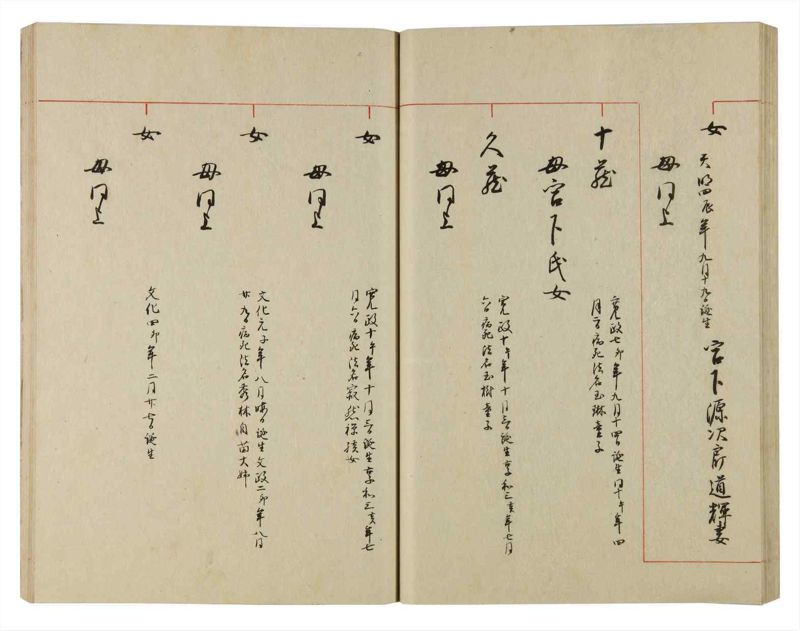 女 天明四辰年九月十九日誕生 宮下源次房道輝妻
母同上
十蔵 寛政七卯年九月十四日誕生同十午年四
月 病死法名玉琳童子
母宮下氏女
久蔵 寛政十午年十月 誕生享和三亥年七月
六日病死法名玉樹童子
母同上
女 寛政十午年十月 誕生享和三亥年七
月六日病死法名寂 禅孩女
母同上
女 文化元子年八月晦日誕生文政二卯年八月
廿九日病死法名秀林自苗大姉
母同上
女 文化四卯年二月廿 日誕生
母同上